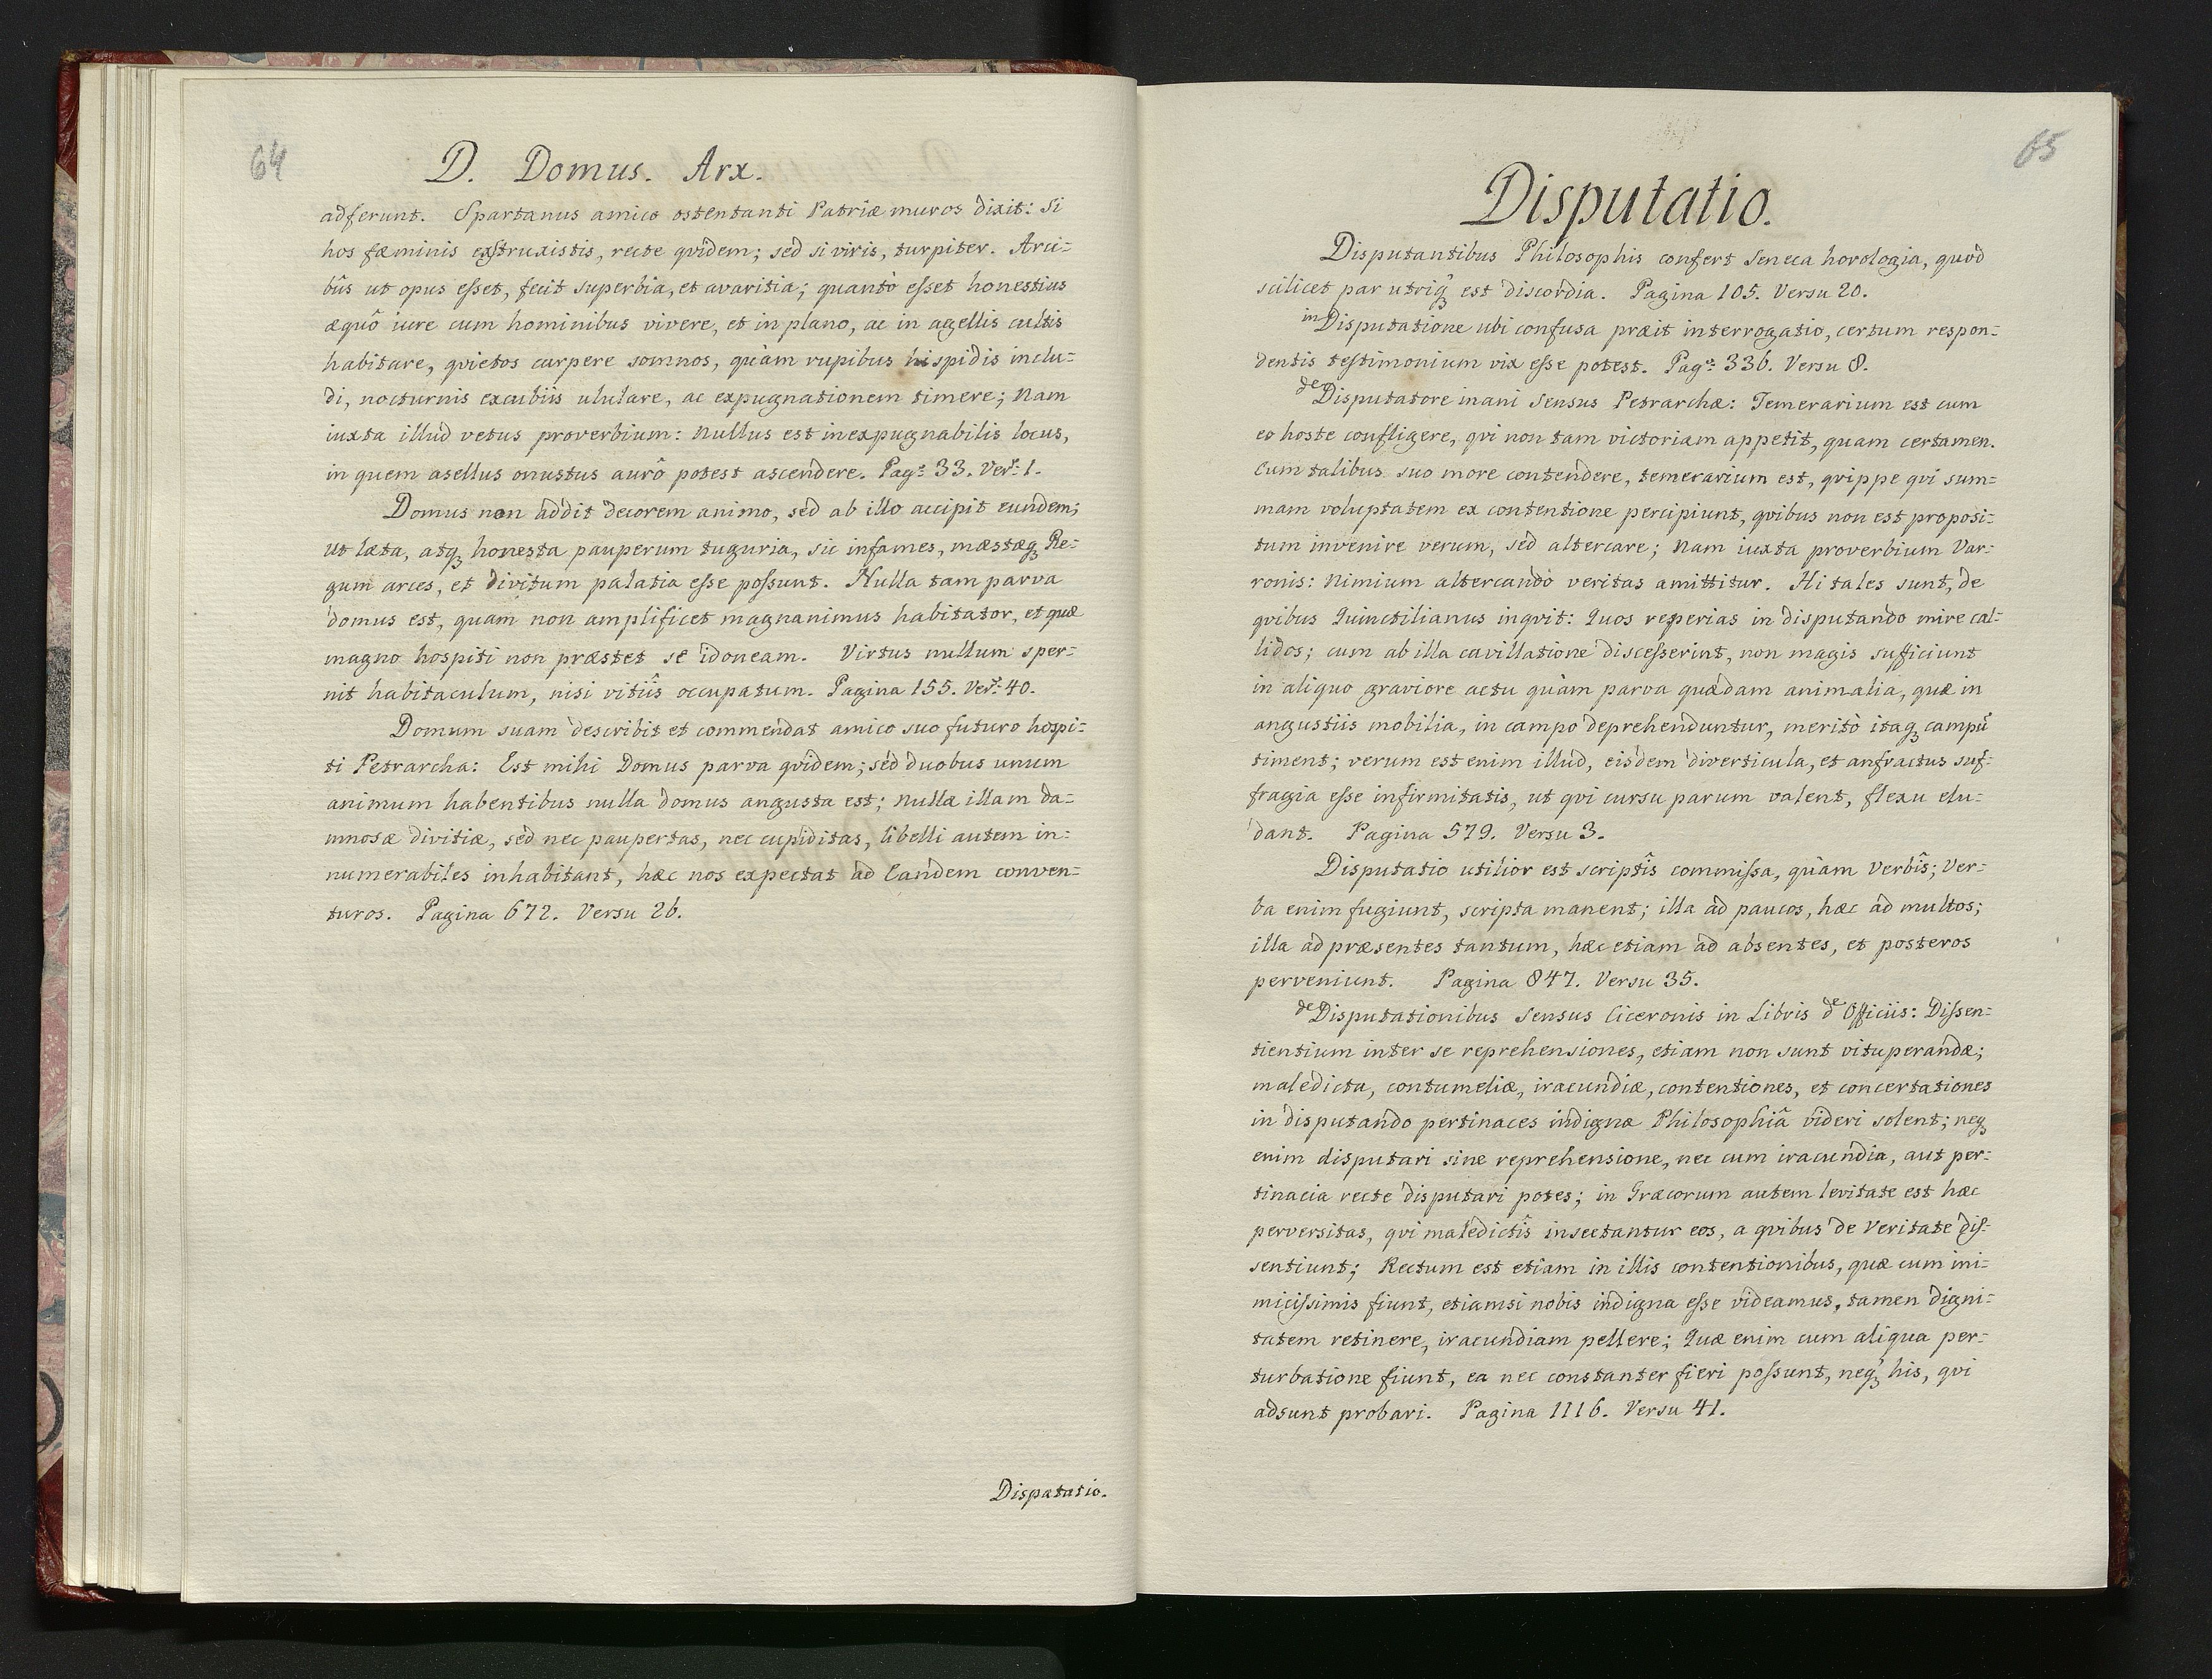 64
D. Domus. Arx.
adferunt. Spartanus amico ostentanti Patriæ muros dixit: si
hos fæminis exstruxistis, recte qvidem; sed si viris, turpiter. Arci=
bûs ut opus esset, fecit superbia, et avaritia; quantò esset honestius
æquô iure cum hominibus vivere, et in plano, ac in agellis cultis
habitare, qvietos carpere somnos, quàm rupibus hispidis inclu=
di, nocturnis excubiis ululare, ac expugnationem timere; Nam
iuxta illud vetus proverbium: Nullus est inexpugnabilis locus,
in quem asellus onustus aurô potest ascendere. Pag: 33. Ver: 1.
Domus non addit decorem animo, sed ab illo accipit eundem;
ut læta, atq honesta pauperum tuguria, sic infames, mæstæq Re=
gum arces, et divitum palatia esse possunt. Nulla tam parva
domus est, quam non amplificet magnanimus habitator, et quæ
magno hospiti non præstet se idoneam. Virtus nullum sper=
nit habitaculum, nisi vitiîs occupatum. Pagina 155. Ver: 40.
Domum suam describit et commendat amico suo futuro hospi=
ti Petrarcha: Est mihi Domus parva qvidem; sed duobus unum
animum habentibus nulla domus angusta est; Nullæ illam da=
mnosæ divitiæ, sed nec paupertas, nec cupiditas, libelli autem in=
numerabiles inhabitant, hæc nos expectat ad Eandem conven=
turos. Pagina 672. Versu 26.
Disputatio.
65
Disputatio.
Disputantibus Philosophis confert Seneca horologia, quod
scilicet par utriq est discordia. Pagina 105. Versu 20.
in Disputatione ubi confusa præit interrogatio, certum respon=
dentis testimonium vix esse potest. Pag: 336. Versu 8.
de Disputatore inani Sensus Petrarchæ: Temerarium est cum
eo hoste confligere, qvi non tam victoriam appetit, quam certamen.
Cum talibus suo more contendere, temerarium est, qvippe qvi sum=
mam voluptatem ex contentione percipiunt, qvibus non est proposi=
tum invenire verum, sed altercare; Nam iuxta proverbium Var=
ronis: Nimium altercando veritas amittitur. Hi tales sunt, de
qvibus Quinctilianus inqvit: Quos reperias in disputando mire cal=
lidos; cum ab illa cavillatione discesserint, non magis sufficiunt
in aliquo graviore actu quàm parva quædam animalia, quæ in
angustiis mobilia, in campo deprehenduntur, meritò itaq campũ
timent; verum est enim illud, eisdem diverticula, et anfractus suf=
fragia esse infirmitatis, ut qvi cursu parum valent, flexu elu=
dant. Pagina 579. Versu 3.
Disputatio utilior est scriptîs commissa, quàm Verbîs; Ver=
ba enim fugiunt, scripta manent; illa ad paucos, hæc ad multos;
illa ad præsentes tantum, hæc etiam ad absentes, et posteros
perveniunt. Pagina 847. Versu 35.
de Disputationibus Sensus Ciceronis in Libris de Officiis: Dissen=
tientium inter se reprehensiones, etiam non sunt vituperandæ;
maledicta, contumeliæ, iracundiæ, contentiones, et concertationes
in disputando pertinaces indignæ Philosophiâ videri solent; neq
enim disputari sine reprehensione, nec cum iracundia, aut per=
tinacia recte disputari potes; in Græcorum autem levitate est hæc
perversitas, qvi maledictîs insectantur eos, a qvibus de Veritate dis=
sentiunt; Rectum est etiam in illis contentionibus, quæ cum ini=
micissimis fiunt, etiamsi nobis indigna esse videamus, tamen digni=
tatem retinere, iracundiam pellere; Quæ enim cum aliqua per=
turbatione fiunt, ea nec constanter fieri possunt, neq his, qvi
adsunt probari. Pagina 1116. Versu 41.